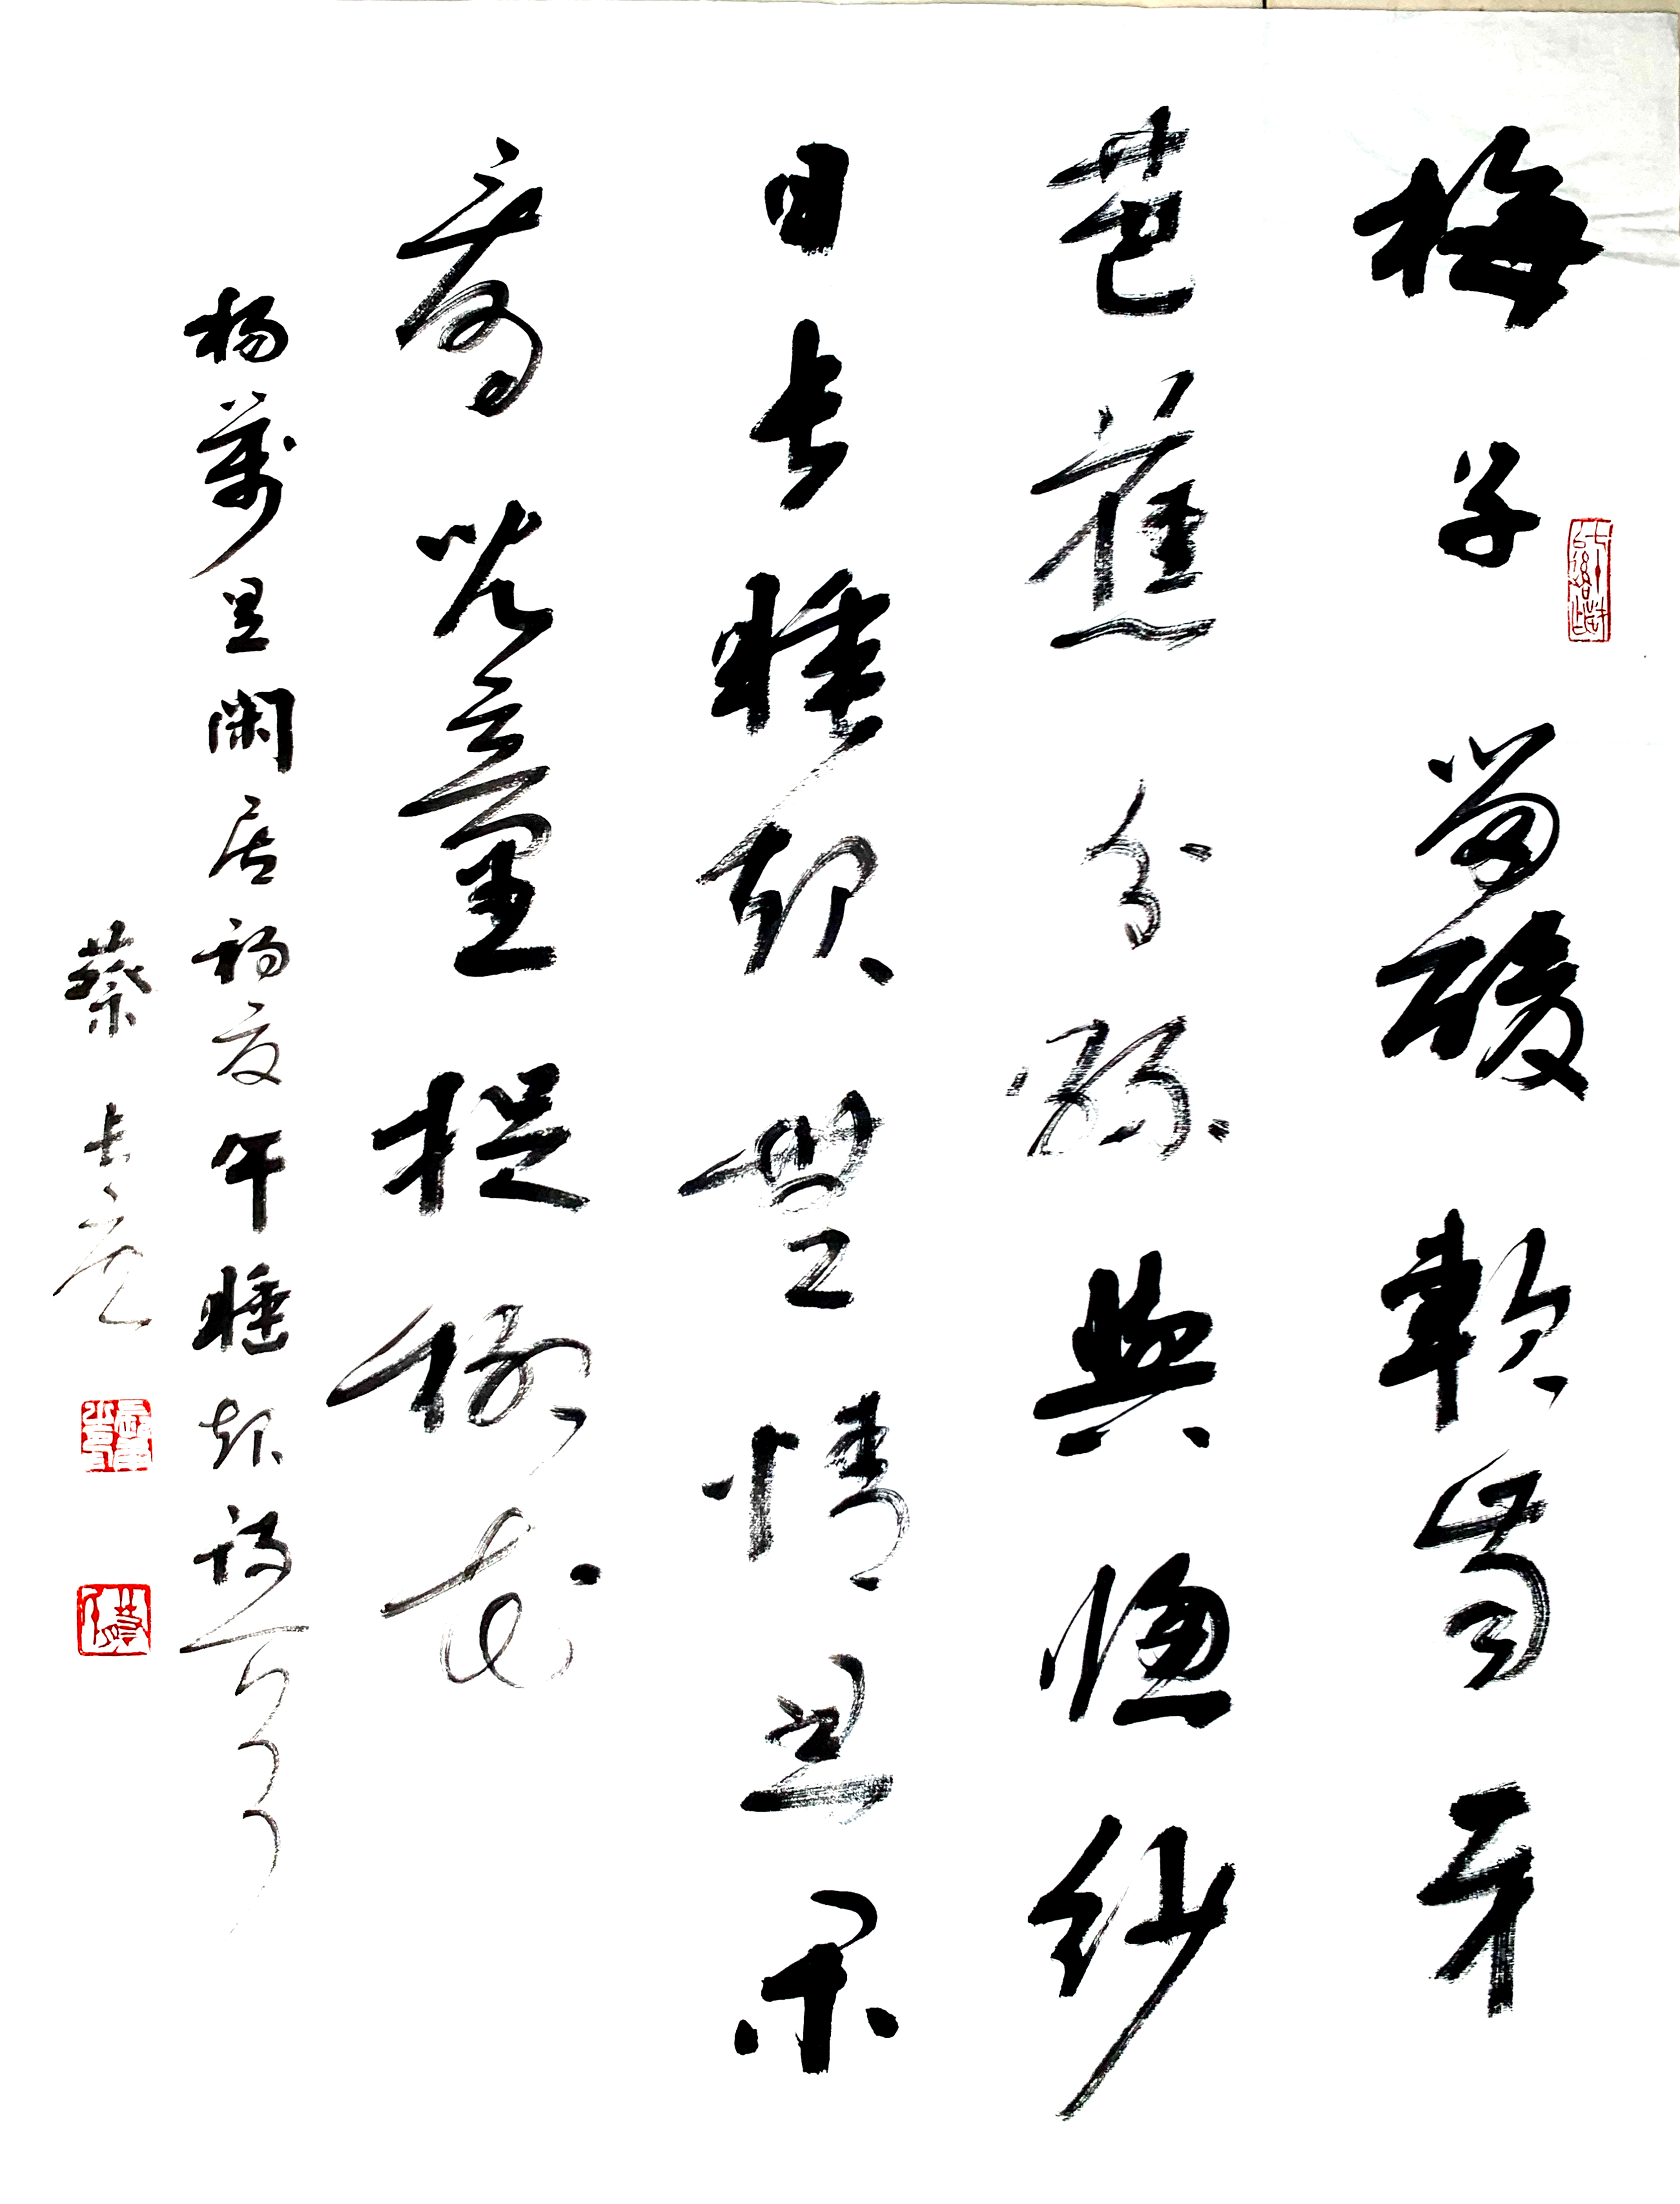 梅子留酸軟齒牙
芭蕉分綠與窗紗
日長睡起無情思閑
看兒童捉柳花
楊萬里閑居初夏午睡起詩一首
蔡長